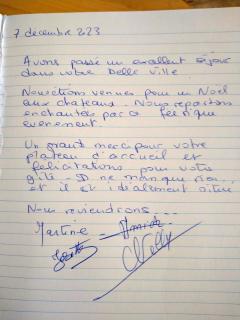 7 decembre 223
Avons passé un excellent séjour
dans votre belle ville.
Nous étions venues pour un Noël
aux chateaux. Nous repartons
enchantées par ce féerique
evenement.
Un grand merci pour votre
plateau d'accueil et
félicitations pour votre
gîte. Il ne manque rien...
et il est idéalement situé
Nous reviendrons...
Martine
Nelly